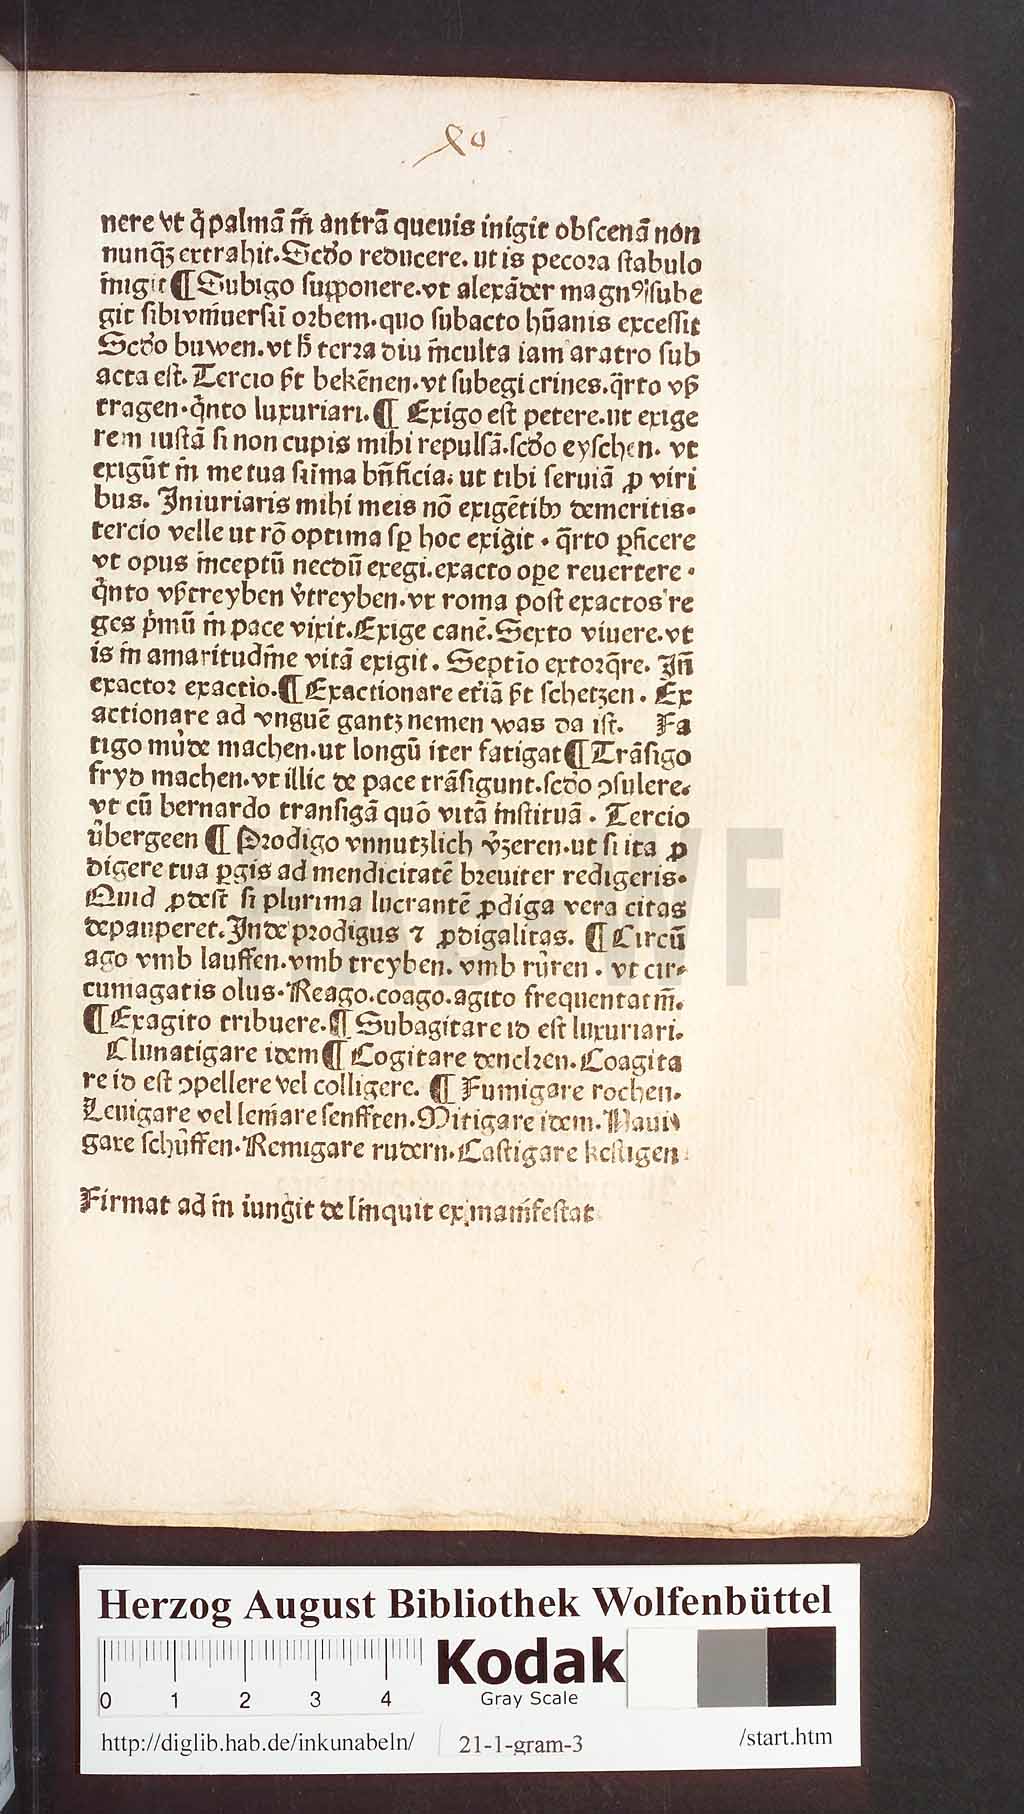 nere vt q̊ palmā m̄ antrā queuis inigit obscenā non
nunqȝ extrahit. Scd́o reducere. ut is pecora stabulo
īnigit ¶ Subigo supponere. vt alexāder magnꝰ sube
git sibi vniuersū orbem. quo subacto hūanis excessit
Scd́o buwen. vt h̄ terra diu inculta iam aratro sub
acta est. Tercio ṕt bekēnen. vt subegi crines. q̄rto vṕ
tragen. q̊nto luxuriari. ¶ Exigo est petere. ut exige
rem iustā si non cupis mihi repulsā. scd́o eyschen. vt
exigūt in me tua sūma bn̄ficia. ut tibi seruiā ꝓ viri
bus. Iniuriaris mihi meis nō exigētibꝰ demeritis.
tercio velle ut rō optima sꝑ hoc exigit. q̄rto ꝑficere
vt opus inceptū necdū exegi. exacto oꝑe reuertere.
q̊nto vṕtreyben v̓treyben. vt roma post exactos re
ges p̓mū in pace vixit. Exige canē. Sexto viuere. vt
is in amaritudine vitā exigit. Septīo extorq̄re. In̄
exactor exactio. ¶ Exactionare etiā ṕt schetzen. Ex
actionare ad vnguē gantz nemen was da ist. Fa
tigo mu̓de machen. ut longū iter fatigat ¶ Trāsigo
fryd machen. vt illic de pace trāsigunt. scd́o ꝯsulere.
vt cū bernardo transigā quō vitā instituā. Tercio
u̓bergeen ¶ Prodigo vnnutzlich v̓zeren. ut si ita ꝓ
digere tua ꝑgis ad mendicitatē breuiter redigeris.
Quid ꝓdest si plurima lucrantē ꝓdiga vera citas
depauperet. Inde prodigus ⁊ ꝓdigalitas. ¶ Circū
ago vmb lauffen. vmb treyben. vmb ru̓ren. vt cir⸗
cumagatis olus. Reago. coago. agito frequentatm̄.
¶ Exagito tribuere. ¶ Subagitare id est luxuriari.
Clunatigare idem ¶ Cogitare dencken. Coagita
re id est ꝯpellere vel colligere. ¶ Fumigare rochen.
Leuigare vel leniare senfften. Mitigare idem. Naui
gare schu̓ffen. Remigare rudern. Castigare kestigen
Firmat ad in iungit de linquit ex manifestat
Herzog August Bibliothek Wolfenbüttel
0 1 2 3 4
Kodak
Gray Scale
http://diglib.hab.de/inkunabeln/ 21-1-gram-3 /start.htm
HAB WF